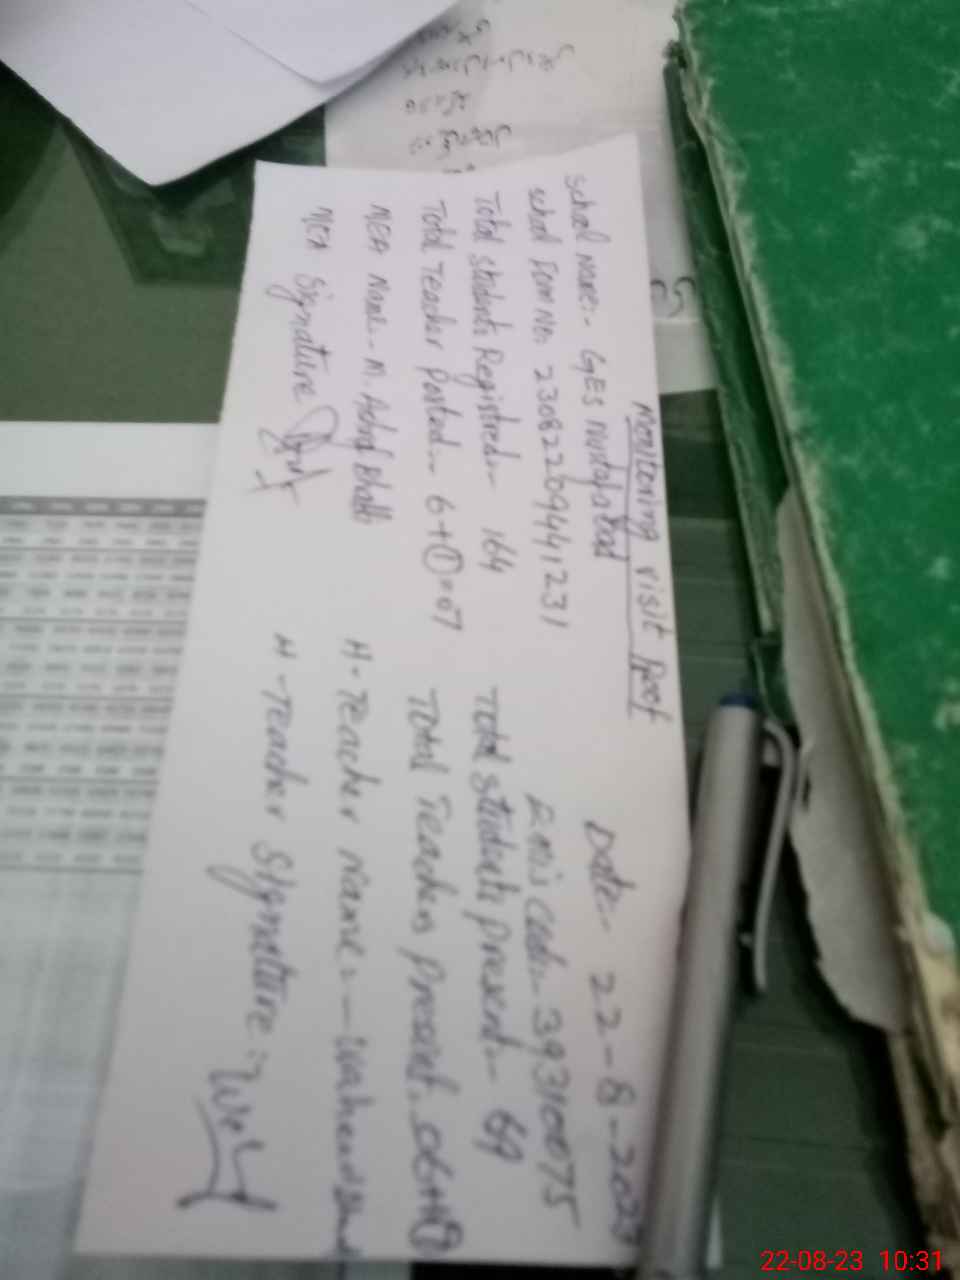 Monitoring visit Proof
School Name:- GES Murtazabad Date:- 22-8-2023
School Form No. 230822209441231 Emis Code- 39310075
Total Students Registred- 164 Total Students Present- 69
Total Teacher Posted- 6+①=07 Total Teachers Present. 06+①
MEA Name- M. Ashraf Bhatti H-Teacher Name:-
MEA Signature H-Teacher Signature:
22-08-23 10:31